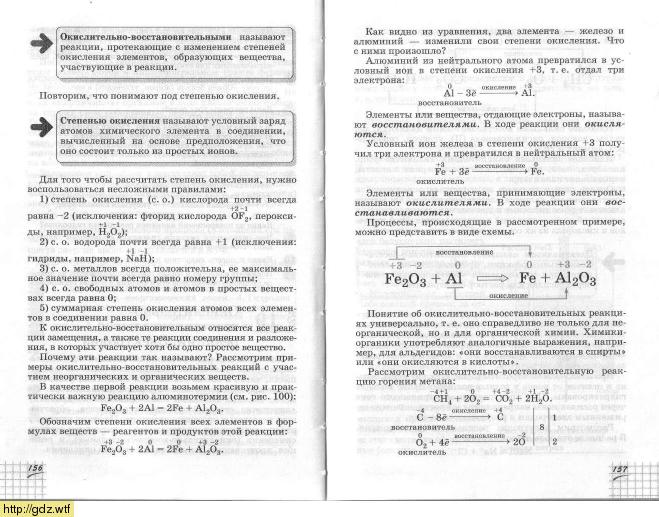 Окислительно-восстановительными называют
реакции, протекающие с изменением степеней
окисления элементов, образующих вещества,
участвующие в реакции.
Повторим, что понимают под степенью окисления.
Степенью окисления называют условный заряд
атомов химического элемента в соединении,
вычисленный на основе предположения, что
оно состоит только из простых ионов.
Для того чтобы рассчитать степень окисления, нужно
воспользоваться несложными правилами:
1) степень окисления (с. о.) кислорода почти всегда
+2 −1
равна −2 (исключения: фторид кислорода OF₂, перокси-
+1 −1
ды, например, H₂O₂);
2) с. о. водорода почти всегда равна +1 (исключения:
+1 −1
гидриды, например, NaH);
3) с. о. металлов всегда положительна, ее максималь-
ное значение почти всегда равно номеру группы;
4) с. о. свободных атомов и атомов в простых вещест-
вах всегда равна 0;
5) суммарная степень окисления атомов всех элемен-
тов в соединении равна 0.
К окислительно-восстановительным относятся все реак-
ции замещения, а также те реакции соединения и разложе-
ния, в которых участвует хотя бы одно простое вещество.
Почему эти реакции так называют? Рассмотрим при-
меры окислительно-восстановительных реакций с учас-
тием неорганических и органических веществ.
В качестве первой реакции возьмем красивую и прак-
тически важную реакцию алюминотермии (см. рис. 100):
Fe₂O₃ + 2Al = 2Fe + Al₂O₃.
Обозначим степени окисления всех элементов в фор-
мулах веществ — реагентов и продуктов этой реакции:
+3 −2 0 0 +3 −2
Fe₂O₃ + 2Al = 2Fe + Al₂O₃.
156
Как видно из уравнения, два элемента — железо и
алюминий — изменили свои степени окисления. Что
с ними произошло?
Алюминий из нейтрального атома превратился в ус-
ловный ион в степени окисления +3, т. е. отдал три
электрона:
0 окисление +3
Al − 3ē ⟶ Al.
восстановитель
Элементы или вещества, отдающие электроны, называ-
ют восстановителями. В ходе реакции они окисля-
ются.
Условный ион железа в степени окисления +3 полу-
чил три электрона и превратился в нейтральный атом:
+3 восстановление 0
Fe + 3ē ⟶ Fe.
окислитель
Элементы или вещества, принимающие электроны,
называют окислителями. В ходе реакции они вос-
станавливаются.
Процессы, происходящие в рассмотренном примере,
можно представить в виде схемы.
восстановление
+3 −2 0 0 +3 −2
Fe₂O₃ + Al ⟹ Fe + Al₂O₃
окисление
Понятие об окислительно-восстановительных реакци-
ях универсально, т. е. оно справедливо не только для не-
органической, но и для органической химии. Химики-
органики употребляют аналогичные выражения, напри-
мер, для альдегидов: «они восстанавливаются в спирты»
или «они окисляются в кислоты».
Рассмотрим окислительно-восстановительную реак-
цию горения метана:
−4 +1 0 +4 −2 +1 −2
CH₄ + 2O₂ = CO₂ + 2H₂O.
−4 окисление +4
C − 8ē ⟶ C 1
восстановитель 8
0 восстановление −2
O₂ + 4ē ⟶ 2O 2
окислитель
157
http://gdz.wtf